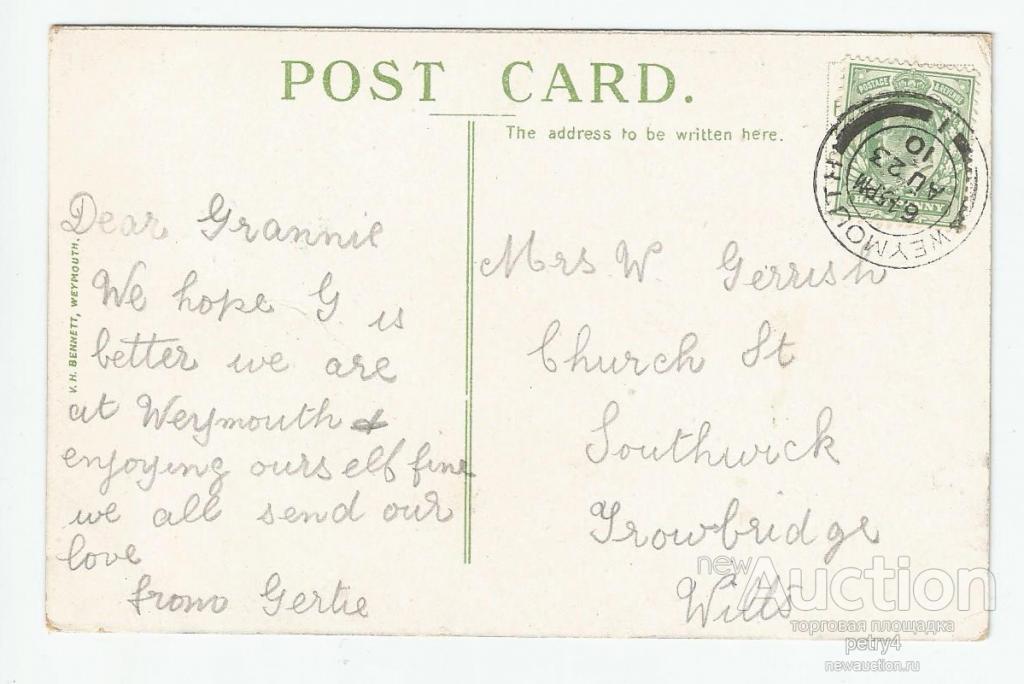 POST CARD.
The address to be written here.
POSTAGE & REVENUE
WEYMOUTH
6.45 PM
AU 23
10
V.H. BENNETT, WEYMOUTH.
Dear Grannie
We hope G is
better we are
at Weymouth &
enjoying ourself fine
we all send our
love
from Gertie
Mrs W Gerrish
Church St
Southwick
Trowbridge
Wilts
newAuction
торговая площадка
petry4
newauction.ru